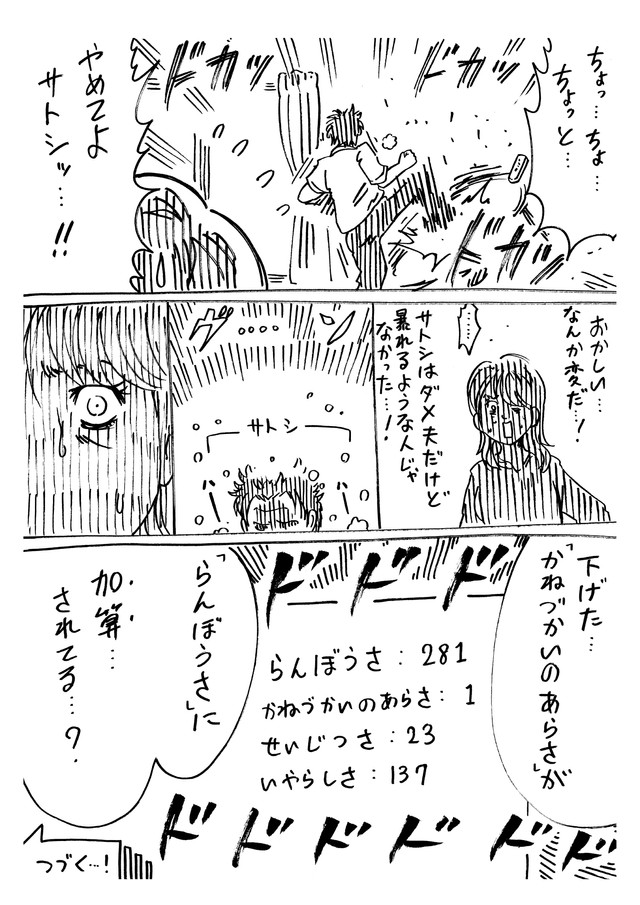 ちょっ…ちょ…
ちょっと…
ドカッ
ドカッ
ドカッ
やめてよ
サトシッ…!!
おかしい…
なんか変だ…!
サトシはダメ夫だけど
暴れるような人じゃ
なかった…!
サトシ
ハー
ハー
下げた…
「かねづかいのあらさ」が
ドドド
らんぼうさ：281
かねづかいのあらさ：1
せいじつさ：23
いやらしさ：137
「らんぼうさ」に
加算…
されてる…?
ドドドドドドド
つづく…!